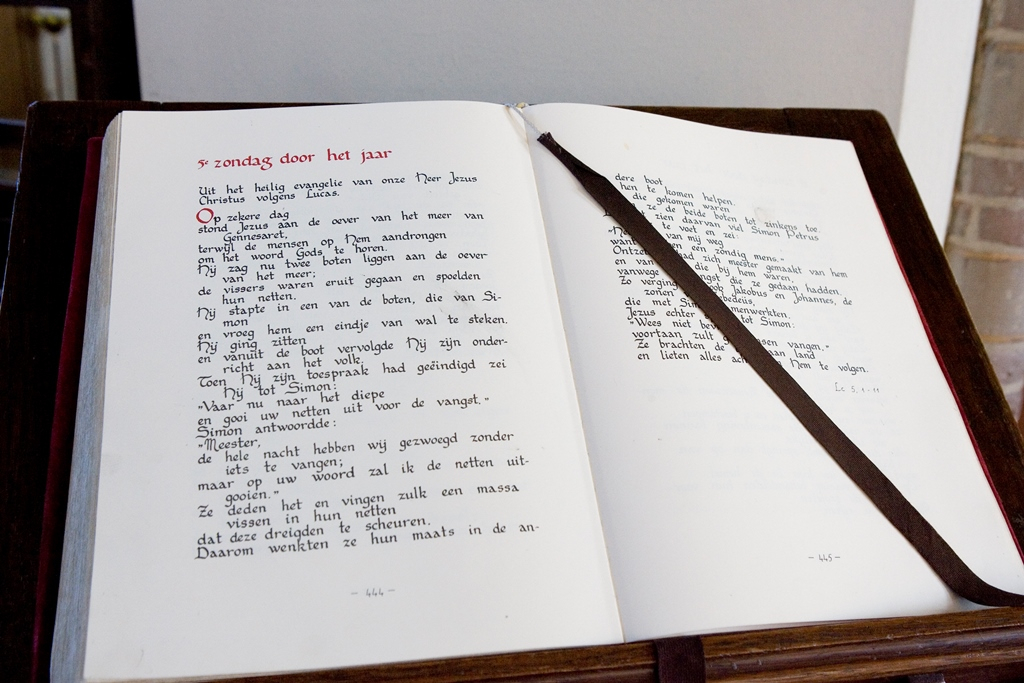 5e zondag door het jaar
Uit het heilig evangelie van onze Heer Jezus
Christus volgens Lucas.
Op zekere dag
stond Jezus aan de oever van het meer van
Gennesaret,
terwijl de mensen op Hem aandrongen
om het woord Gods te horen.
Hij zag nu twee boten liggen aan de oever
van het meer;
de vissers waren eruit gegaan en spoelden
hun netten.
Hij stapte in een van de boten, die van Si-
mon
en vroeg hem een eindje van wal te steken.
Hij ging zitten
en vanuit de boot vervolgde Hij zijn onder-
richt aan het volk.
Toen Hij zijn toespraak had geëindigd zei
Hij tot Simon:
"Vaar nu naar het diepe
en gooi uw netten uit voor de vangst."
Simon antwoordde:
"Meester,
de hele nacht hebben wij gezwoegd zonder
iets te vangen;
maar op uw woord zal ik de netten uit-
gooien."
Ze deden het en vingen zulk een massa
vissen in hun netten
dat deze dreigden te scheuren.
Daarom wenkten ze hun maats in de an-
- 444 -
dere boot
hen te komen helpen.
die gekomen waren
ze de beide boten tot zinkens toe.
zien daarvan viel Simon Petrus
te voet en zei:
van mij weg
want een zondig mens."
Ontze had zich meester gemaakt van hem
en van die bij hem waren,
vanwege ngst die ze gedaan hadden.
Zo verging ook Jakobus en Johannes, de
zonen bedeüs,
die met Sim menwerkten.
Jezus echter tot Simon:
"Wees niet bev
voortaan zult nsen vangen."
Ze brachten de aan land
en lieten alles ach Hem te volgen.
Lc 5, 1-11
- 445 -